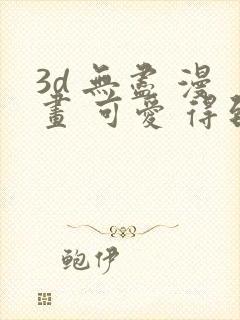 3d 無盡 漫
畫 可愛 得到
鲍伊